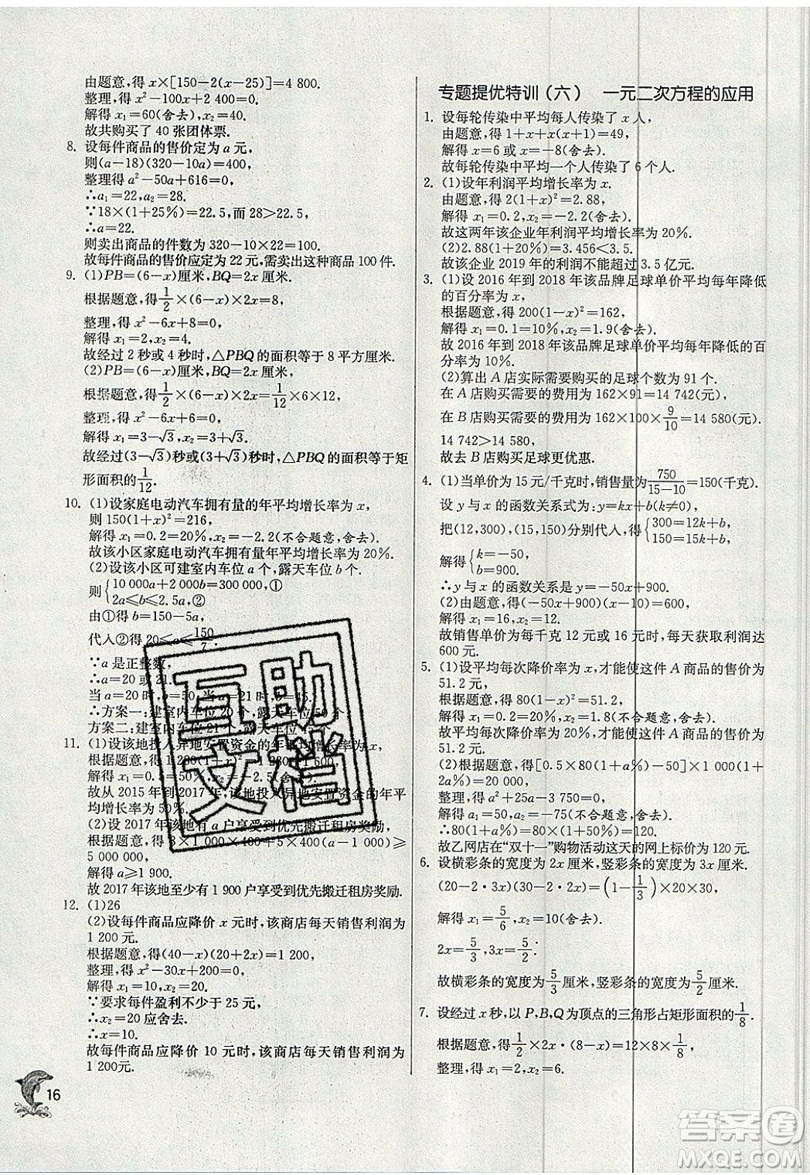 由题意，得 x×[150-2(x-25)]=4 800.
整理，得 x²-100x+2 400=0.
解得 x₁=60(舍去)，x₂=40.
故共购买了 40 张团体票.
8. 设每件商品的售价定为 a 元，
则(a-18)(320-10a)=400，
整理，得 a²-50a+616=0，
∴a₁=22，a₂=28.
∵18×(1+25%)=22.5，而28>22.5，
∴a=22.
则卖出商品的件数为 320-10×22=100.
故每件商品的售价应定为 22 元，需卖出这种商品 100 件.
9. (1)PB=(6-x)厘米，BQ=2x 厘米.
根据题意，得1/2×(6-x)×2x=8，
整理，得 x²-6x+8=0，
解得 x₁=2，x₂=4.
故经过 2 秒或 4 秒时，△PBQ 的面积等于 8 平方厘米.
根据题意，得1/2×(6-x)×2x=1/12×6×12，
整理，得 x²-6x+6=0，
解得 x₁=3-√3，x₂=3+√3.
故经过(3-√3)秒或(3+√3)秒时，△PBQ 的面积等于矩
形面积的1/12.
10. (1)设家庭电动汽车拥有量的年平均增长率为 x，
则 150(1+x)²=216，
解得 x₁=0.2=20%，x₂=-2.2(不合题意，舍去).
故该小区家庭电动汽车拥有量的年平均增长率为 20%.
(2)设该小区可建室内车位 a 个，露天车位 b 个.
则{10 000a+2 000b=300 000，①
2a≤b≤2.5a，②
由①得 b=150-5a，
代入②得 20≤a≤150/7.
∵a 是正整数，
∴a=20 或 21.
当 a=20 时
∴方案一：建室内车位 20 个，露天车位
方案二：建室内车位
11. (1)设该地投入异地安置资金的年平均增长率为 x，
根据题意，得 1 280(1+x)²
解得 x₁=0.5=50%，x₂
故从 2015 年到 2017 年，该地投入异地安置资金的年平
均增长率为 50%.
(2)设 2017 年该地有 a 户享受到优先搬迁租房奖励，
根据题意，得 1 000×8×400+5×400(a-1 000)≥
5 000 000，
解得 a≥1 900.
故 2017 年该地至少有 1 900 户享受到优先搬迁租房奖励.
12. (1)26
(2)设每件商品应降价 x 元时，该商店每天销售利润为
1 200 元.
根据题意，得(40-x)(20+2x)=1 200，
整理，得 x²-30x+200=0，
解得 x₁=10，x₂=20.
∵要求每件盈利不少于 25 元，
∴x₂=20 应舍去.
∴x=10.
故每件商品应降价 10 元时，该商店每天销售利润为
1 200元.
16
专题提优特训(六) 一元二次方程的应用
1. 设每轮传染中平均每人传染了 x 人，
由题意，得 1+x+x(x+1)=49，
解得 x=6 或 x=-8(舍去).
故每轮传染中平均一个人传染了 6 人.
2. (1)设年利润平均增长率为 x.
由题意，得 2(1+x)²=2.88，
解得 x₁=0.2，x₂=-2.2(舍去).
故这两年该企业年利润平均增长率为 20%.
(2)2.88(1+20%)=3.456<3.5.
故该企业 2019 年的利润不能超过 3.5 亿元.
3. (1)设 2016 年到 2018 年该品牌足球单价平均每年降低
的百分率为 x，
根据题意，得 200(1-x)²=162，
解得 x₁=0.1=10%，x₂=1.9(舍去).
故 2016 年到 2018 年该品牌足球单价平均每年降低的百
分率为 10%.
(2)算出 A 店实际需要购买的足球个数为 91 个.
在 A 店购买需要的费用为 162×91=14 742(元)，
在 B 店购买需要的费用为 162×100×9/10=14 580(元)，
14 742>14 580.
故去 B 店购买足球更优惠.
4. (1)当单价为 15 元/千克时，销售量为750/(15-10)=150(千克).
设 y 与 x 的函数关系式为：y=kx+b(k≠0)，
把(12,300)，(15,150)分别代入，得{300=12k+b，
150=15k+b，
解得{k=-50，
b=900.
∴y 与 x 的函数关系式是 y=-50x+900.
(2)由题意，得(-50x+900)(x-10)=600，
解得 x₁=16，x₂=12.
故销售单价为每千克 12 元或 16 元时，每天的利润可达到
600 元.
5. (1)设平均每次降价率为 x，才能使这件 A 商品的售价为
51.2 元，
根据题意，得 80(1-x)²=51.2，
解得 x₁=0.2=20%，x₂=1.8(不合题意，舍去).
故平均每次降价率为 20%，才能使这件 A 商品的售价为
51.2 元.
(2)根据题意，得[0.5×80(1+a%)-30]×10(1+
2a%)=500，
整理，得 a²+75a-3 750=0，
解得 a₁≈30.8，a₂≈-121.8(不合题意，舍去).
∴80(1+a%)=80×(1+30.8%)≈104.6.
故乙网店在“双十一”购物活动这天的网上标价为 104.6 元.
6. 设横彩条的宽度为 2x，竖彩条的宽度为 3x.
(20-2·3x)(30-2·2x)=(1-1/3)×20×30，
解得 x₁=5/6，x₂=10(舍去).
2x=5/3，3x=5/2.
故横彩条的宽度为5/3，竖彩条的宽度为5/2.
7. 设经过 x 秒，以 P，B，Q 为顶点的三角形占矩形面积的1/8.
由题意，得1/2×2x·(8-x)=12×8×1/8，
整理，得 x²-8x+12=0，
互助
文档
答案圈
MXQE.COM